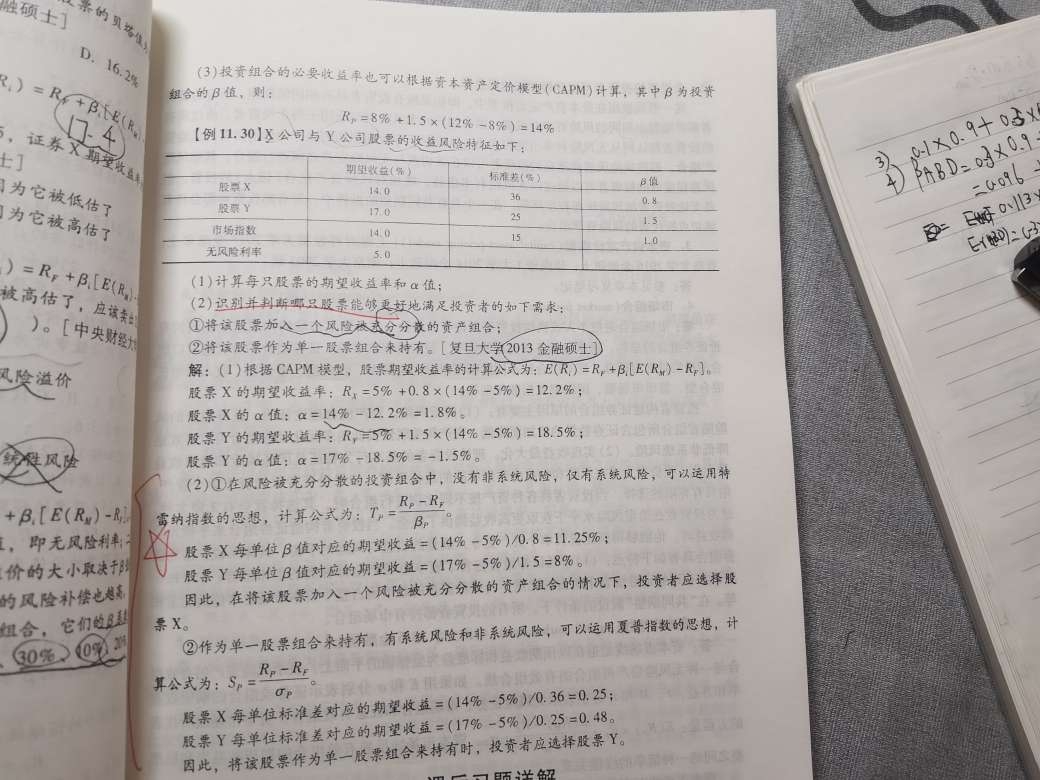 股票的贝塔值
融硕士]
D. 16.2%
17-4
证券X期望收益率
士]
因为它被低估了
因为它被高估了
被高估了，应该卖出
)。[中央财经大
风险溢价
统性风险
+β_i[E(R_M)-R_F]
，即无风险利率
价的大小取决于β
的风险补偿也越高
组合，它们的β
30%、10%、20%
(3)投资组合的必要收益率也可以根据资本资产定价模型(CAPM)计算，其中β为投资
组合的β值，则：
R_P=8%+1.5×(12%-8%)=14%
【例11.30】X公司与Y公司股票的收益风险特征如下：
期望收益(%) 标准差(%) β值
股票X 14.0 36 0.8
股票Y 17.0 25 1.5
市场指数 14.0 15 1.0
无风险利率 5.0
(1)计算每只股票的期望收益率和α值；
(2)识别并判断哪只股票能够更好地满足投资者的如下需求：
①将该股票加入一个风险被充分分散的资产组合；
②将该股票作为单一股票组合来持有。[复旦大学2013金融硕士]
解：(1)根据CAPM模型，股票期望收益率的计算公式为：E(R_i)=R_F+β_i[E(R_M)-R_F]。
股票X的期望收益率：R_X=5%+0.8×(14%-5%)=12.2%；
股票X的α值：α=14%-12.2%=1.8%。
股票Y的期望收益率：R_Y=5%+1.5×(14%-5%)=18.5%；
股票Y的α值：α=17%-18.5%=-1.5%。
(2)①在风险被充分分散的投资组合中，没有非系统风险，仅有系统风险，可以运用特
雷纳指数的思想，计算公式为：T_P=(R_P-R_F)/β_P。
股票X每单位β值对应的期望收益=(14%-5%)/0.8=11.25%；
股票Y每单位β值对应的期望收益=(17%-5%)/1.5=8%。
因此，在将该股票加入一个风险被充分分散的资产组合的情况下，投资者应选择股
票X。
②作为单一股票组合来持有，有系统风险和非系统风险，可以运用夏普指数的思想，计
算公式为：S_P=(R_P-R_F)/σ_P。
股票X每单位标准差对应的期望收益=(14%-5%)/0.36=0.25；
股票Y每单位标准差对应的期望收益=(17%-5%)/0.25=0.48。
因此，将该股票作为单一股票组合来持有时，投资者应选择股票Y。
课后习题详解
3) 0.1×0.9+0.3×
4) PABD=0.3×0.9
=0.096